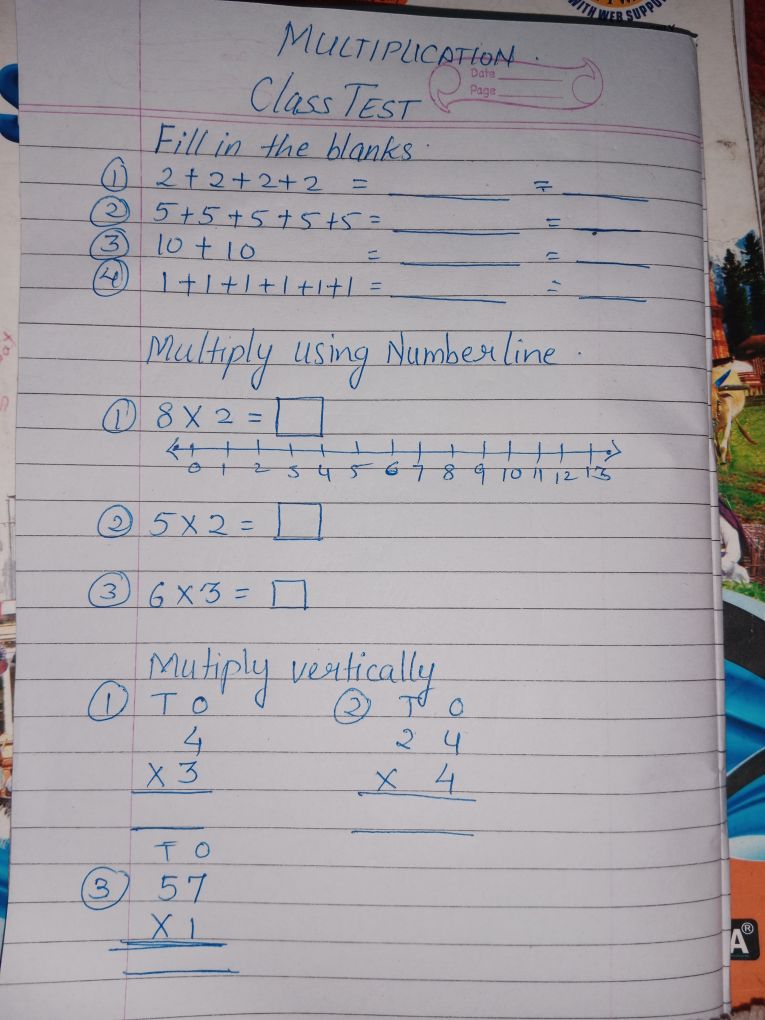 WITH WEB SUPPO
MULTIPLICATION.
Date
Class TEST
Page
Fill in the blanks.
① 2+2+2+2 = ______ = ______
② 5+5+5+5+5 = ______ = ______
③ 10+10 = ______ = ______
④ 1+1+1+1+1+1 = ______ = ______
Multiply using Numberline.
① 8 X 2 = □
0 1 2 3 4 5 6 7 8 9 10 11 12 13
② 5 X 2 = □
③ 6 X 3 = □
Mutiply vertically
① T O ② T O
4 2 4
X 3 X 4
T O
③ 57
X 1
A®